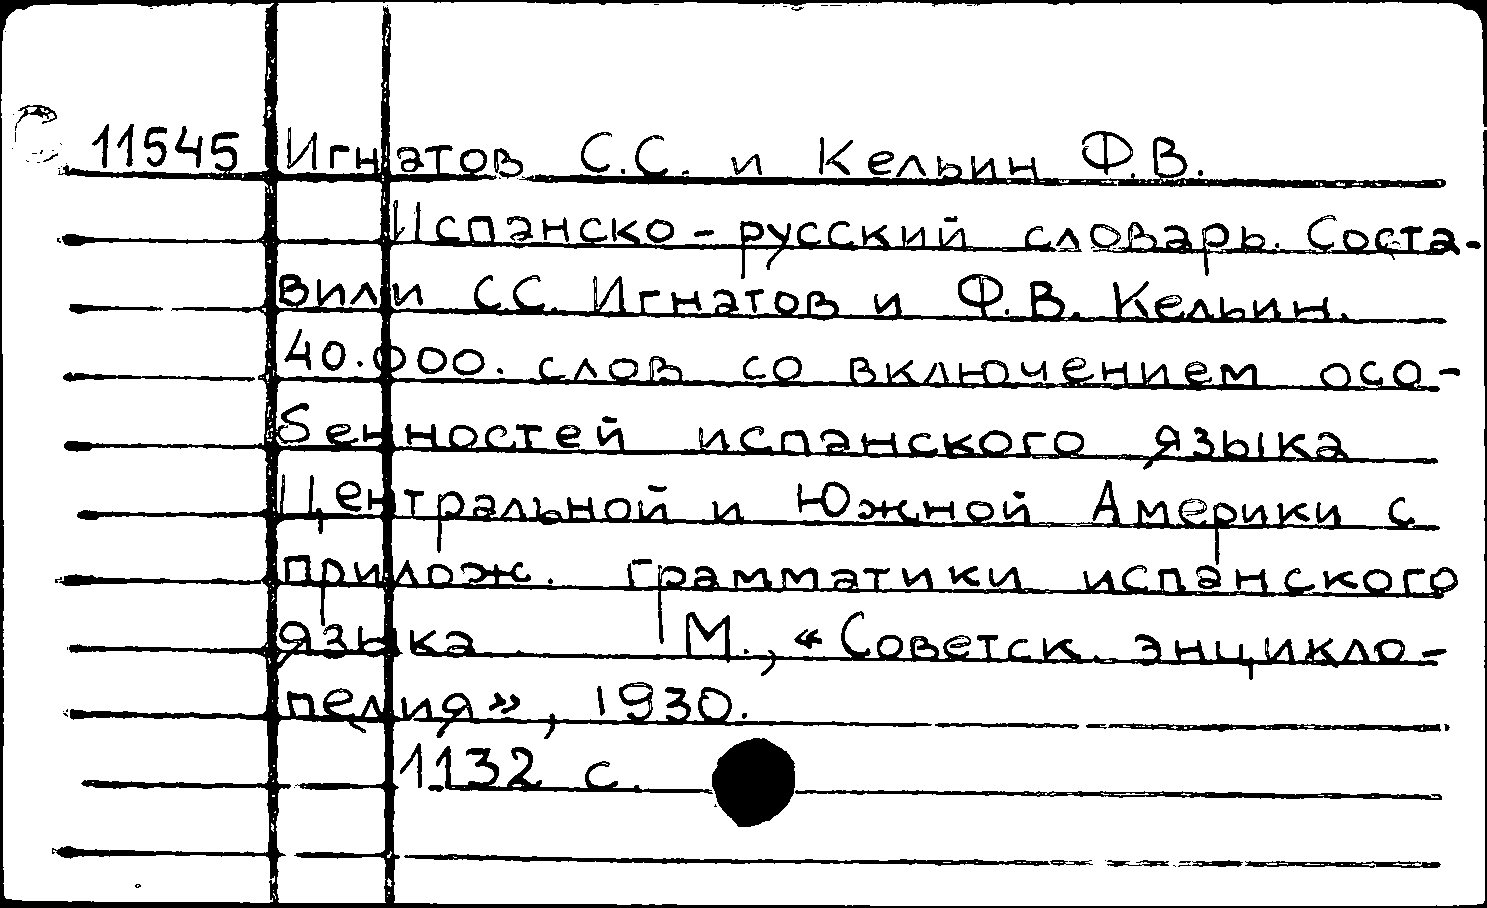 С 11545 Игнатов С.С. и Кельин Ф.В.
Испанско-русский словарь. Соста-
вили С.С. Игнатов и Ф.В. Кельин.
40.000. слов со включением осо-
бенностей испанского языка
Центральной и Южной Америки с
прилож. грамматики испанского
языка. М., «Советск. энцикло-
педия», 1930.
1132 с.